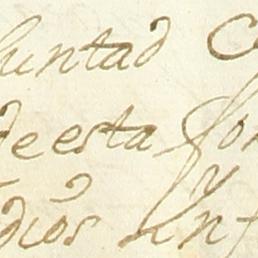 luntad C
de esta for
y
dios Inf